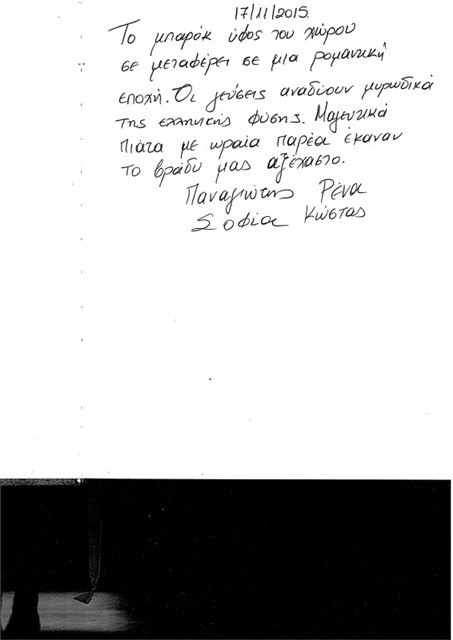 17/11/2015
Το μπαρόκ ύφος του χώρου
σε μεταφέρει σε μια ρομαντική
εποχή. Οι γεύσεις αναδύουν μυρωδικά
της ελληνικής φύσης. Μαγευτικά
πιάτα με ωραία παρέα έκαναν
το βράδυ μας αξέχαστο.
Παναγιώτης Ρένα
Σοφία Κώστας